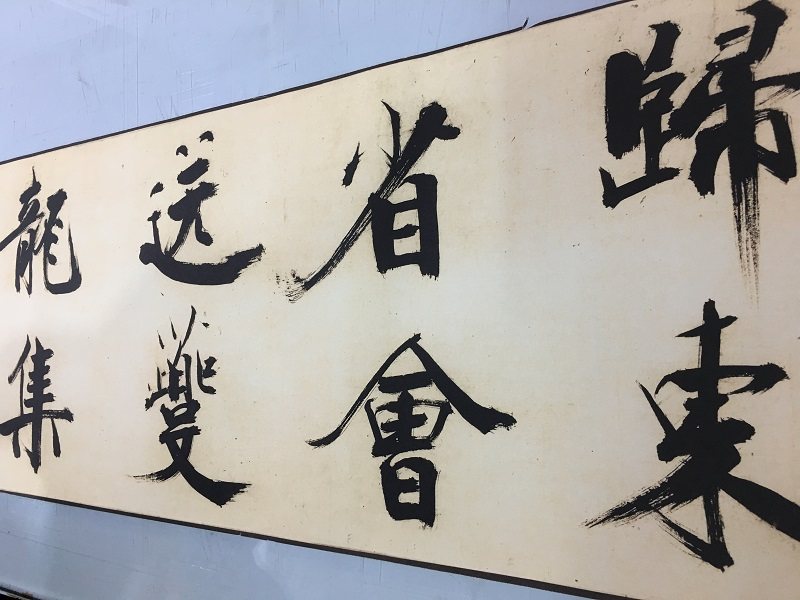 歸東
省會
送夔
龍集